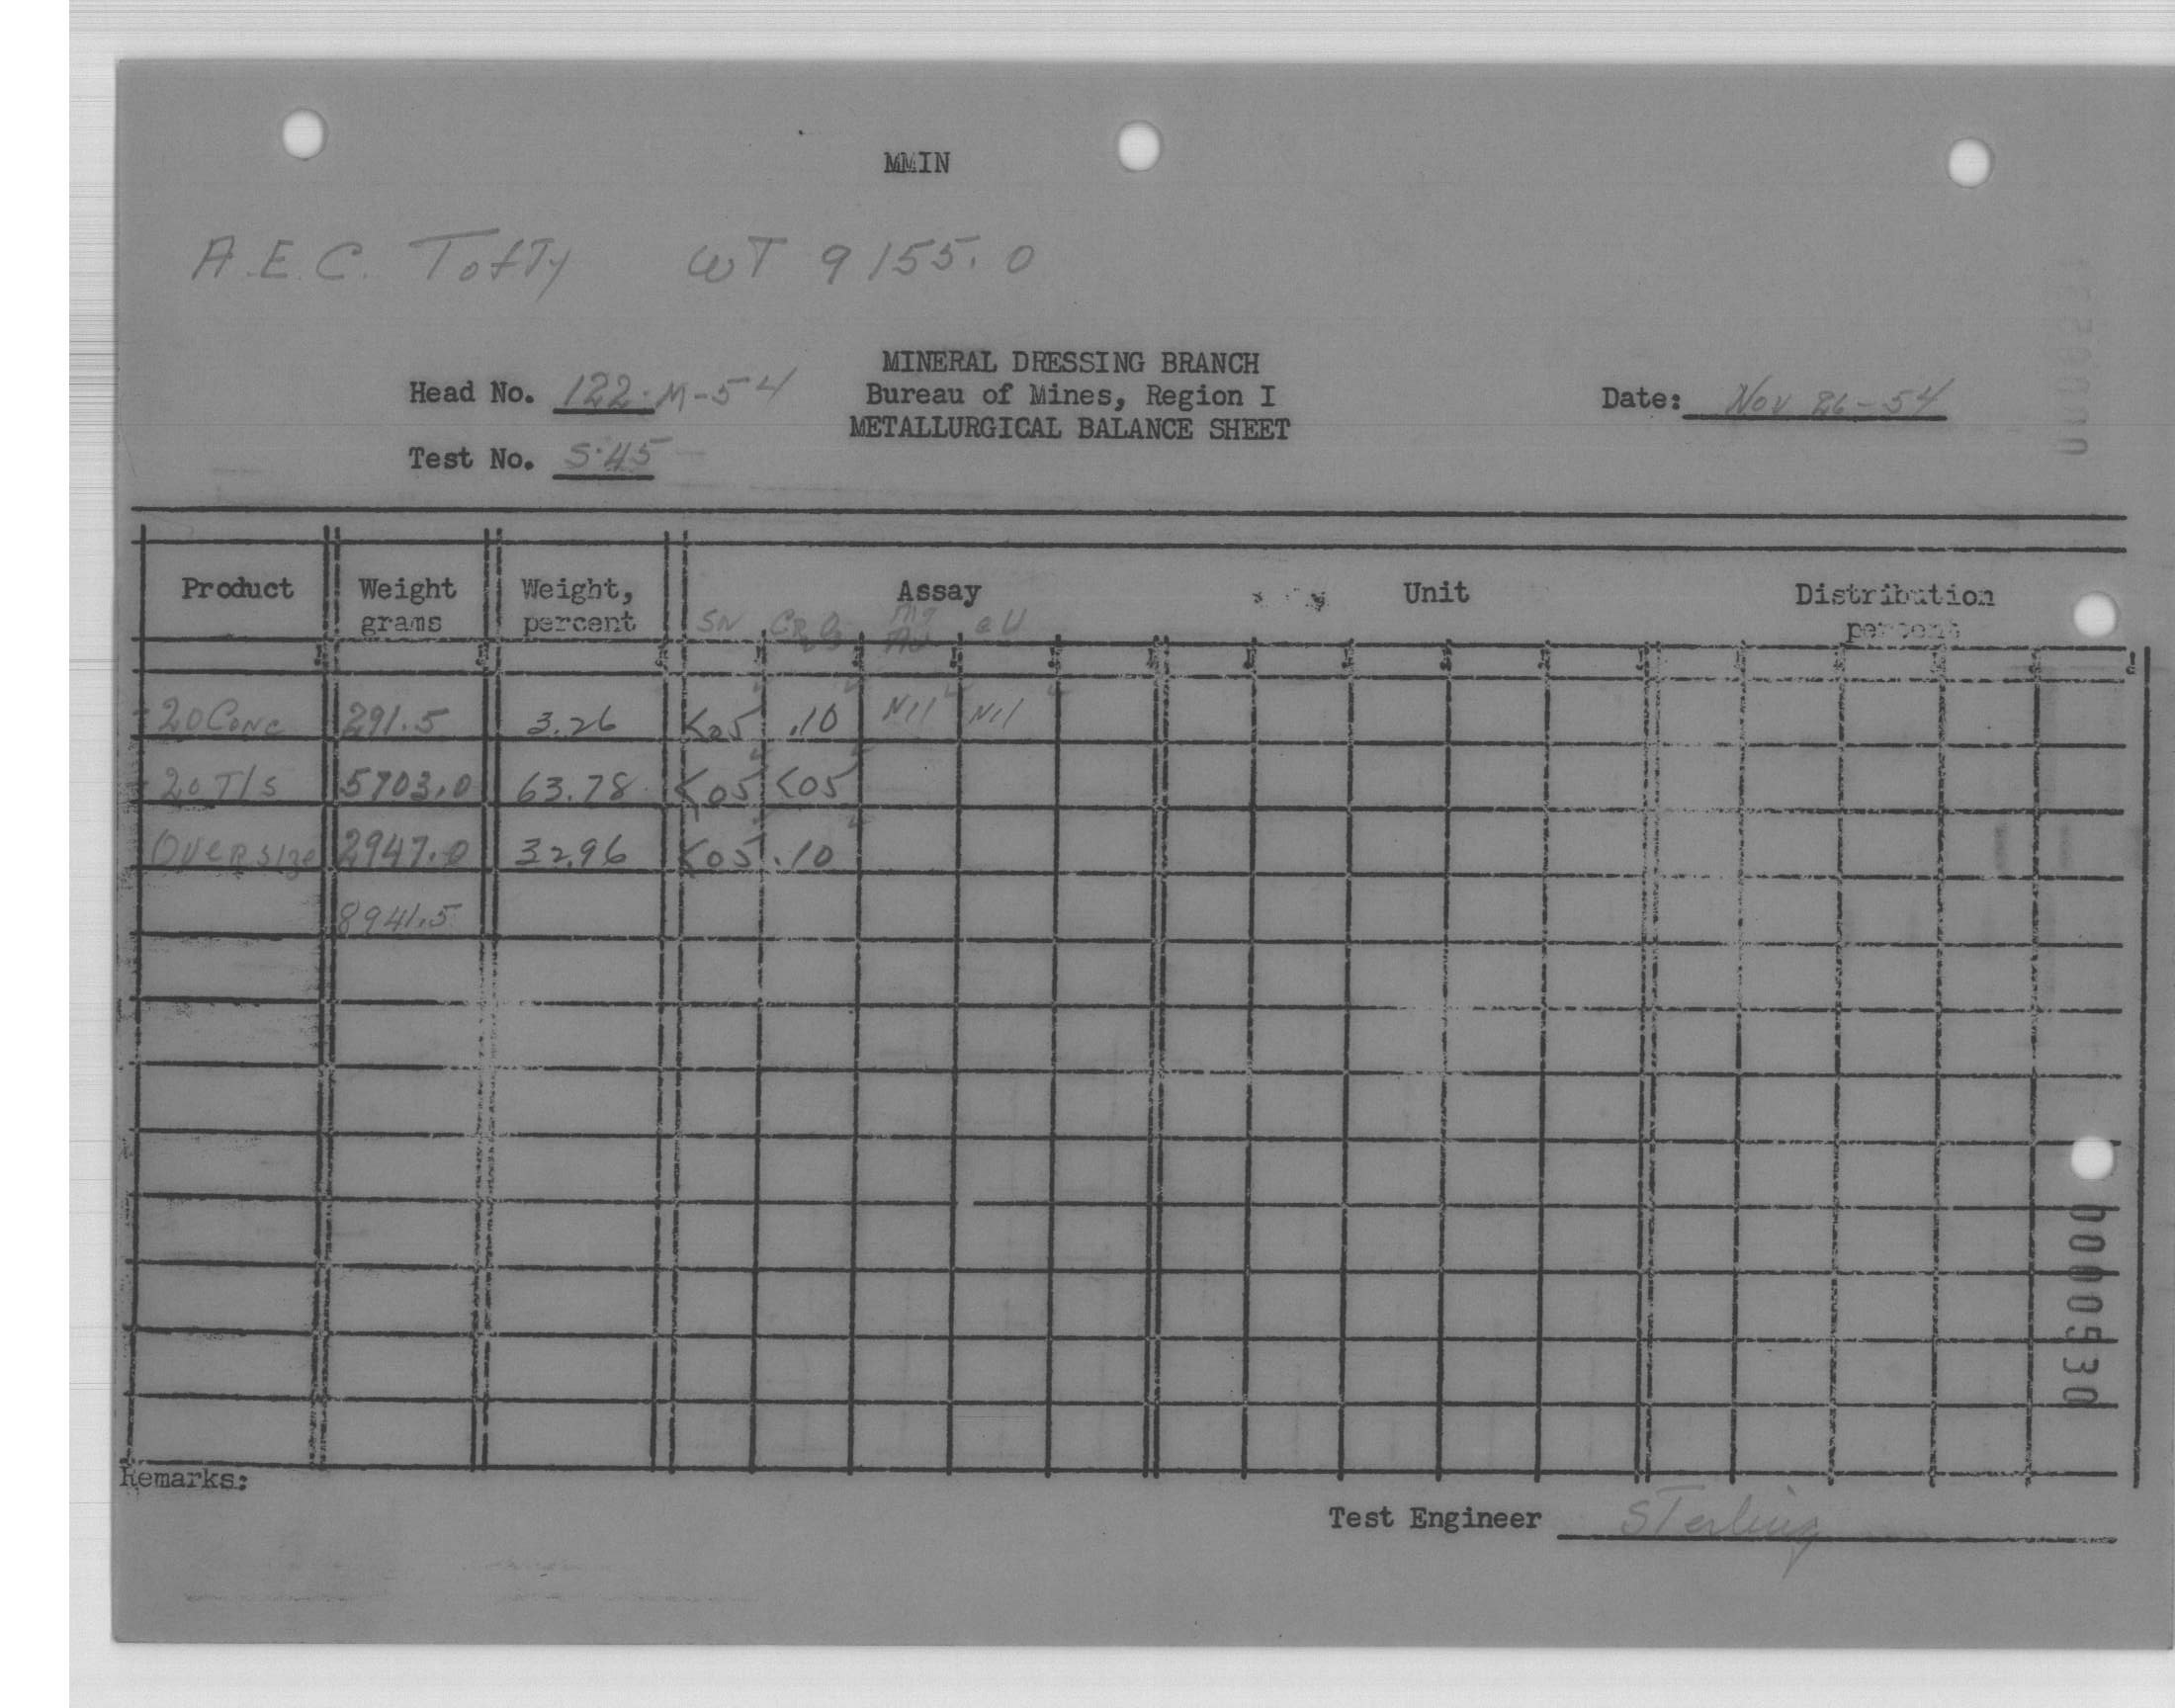 MMIN
A.E.C. Tofty WT 9155.0
MINERAL DRESSING BRANCH
Head No. 122-M-54 Bureau of Mines, Region I Date: Nov 26-54
METALLURGICAL BALANCE SHEET
Test No. S-45
Product Weight grams Weight, percent Assay Unit Distribution percent
SN CR2O3 Mg Au eU
-20 Conc 291.5 3.26 <05 .10 Nil Nil
-20 T/s 5703.0 63.78 <05 <05
Oversize 2947.0 32.96 <05 .10
8941.5
Remarks:
Test Engineer Sterling
0000530